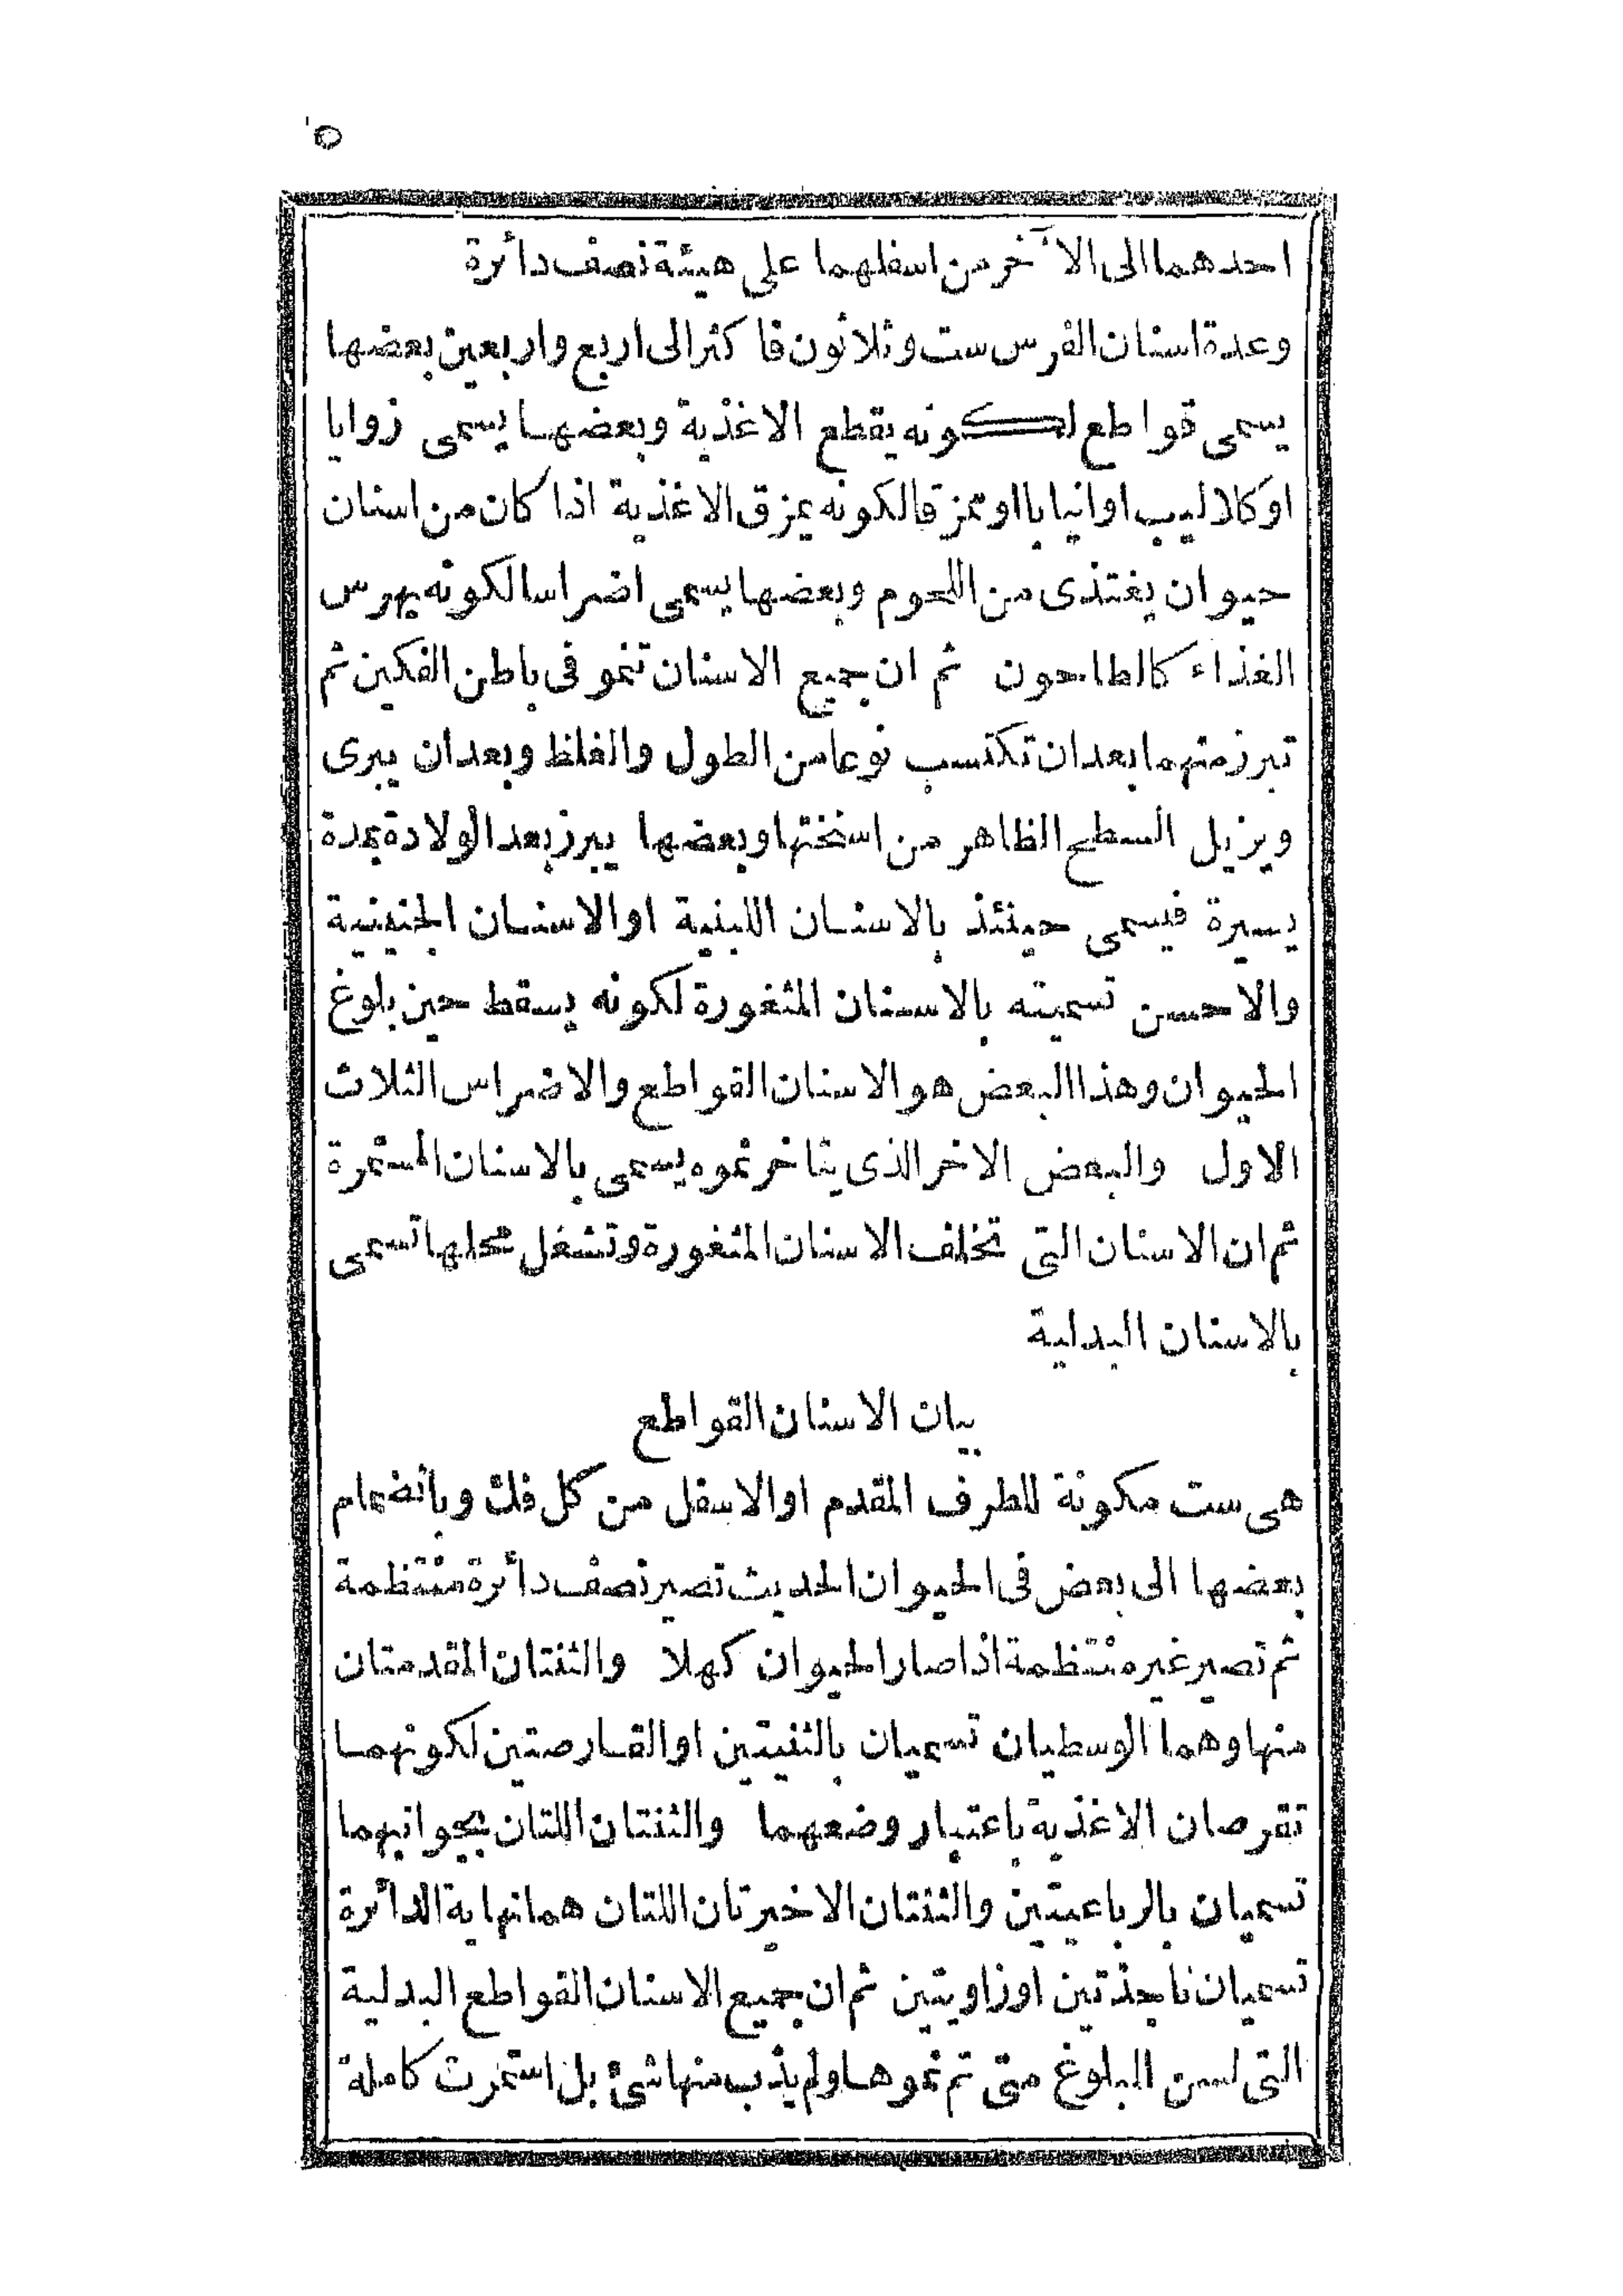 ٥
احدهما الى الآخر من اسفلهما على هيئة نصف دائرة
وعدة اسنان الفرس ست وثلاثون فاكثر الى اربع واربعين بعضها
يسمى قواطع لكونه يقطع الاغذية وبعضها يسمى زوايا
او كلاليب او انيابا او تمزقا لكونه يمزق الاغذية اذا كان من اسنان
حيوان يغتذى من اللحوم وبعضها يسمى اضراسا لكونه يهرس
الغذاء كالطاحون ثم ان جميع الاسنان تنمو فى باطن الفكين ثم
تبرز منهما بعد ان تكتسب نوعا من الطول والغلظ وبعد ان يبرى
ويزيل السطح الظاهر من اسنختها وبعضها يبرز بعد الولادة بمدة
يسيرة فيسمى حينئذ بالاسنان اللبنية او الاسنان الجنينية
والاحسن تسميته بالاسنان المثغورة لكونه يسقط حين بلوغ
الحيوان وهذا البعض هو الاسنان القواطع والاضراس الثلاث
الاول والبعض الاخر الذى يتاخر نموه يسمى بالاسنان المستمرة
ثم ان الاسنان التى تخلف الاسنان المثغورة وتشغل محلها تسمى
بالاسنان البدلية
بيان الاسنان القواطع
هى ست مكونة للطرف المقدم او الاسفل من كل فك وبأنضمام
بعضها الى بعض فى الحيوان الحديث تصير نصف دائرة منتظمة
ثم تصير غير منتظمة اذا صار الحيوان كهلا والثنتان المقدمتان
منها وهما الوسطيان تسميان بالثنيتين او القارصتين لكونهما
تقرصان الاغذية باعتبار وضعهما والثنتان اللتان بجوانبهما
تسميان بالرباعيتين والثنتان الاخيرتان اللتان هما نهاية الدائرة
تسميان ناجذتين او زاويتين ثم ان جميع الاسنان القواطع البدلية
التى لسن البلوغ متى تم نموها ولم يذب منها شئ بل استمرت كاملة